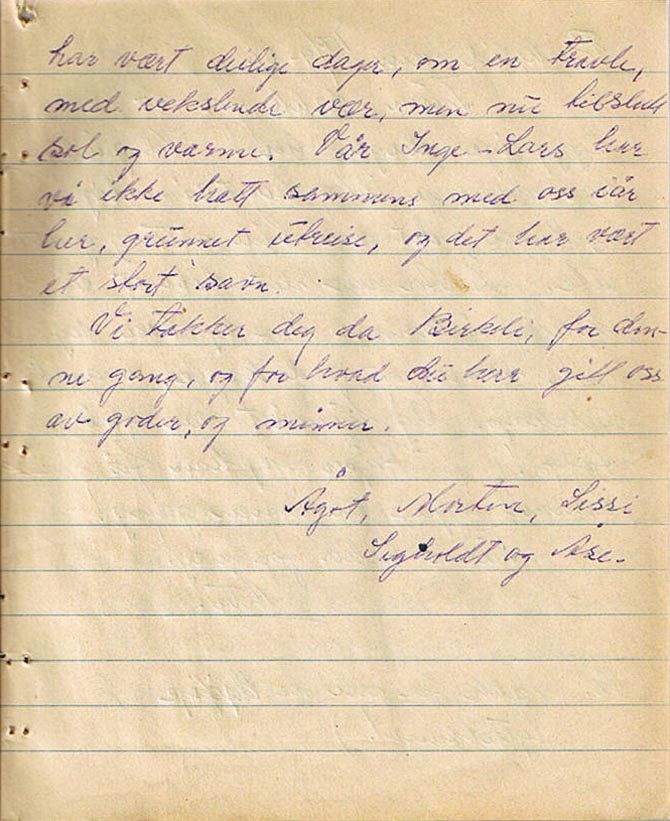 har vært deilige dager, om en travle,
med vekslende vær, men nu tilslutt
sol og varme. Vår Inge-Lars har
vi ikke hatt sammens med oss iår
her, grunnet utreise, og det har vært
et stort savn.
Vi takker deg da Birkeli, for den-
ne gang, og for hvad du har gitt oss
av goder, og minner.
Ågot, Morten, Lissi
Sigholdt og Åse.